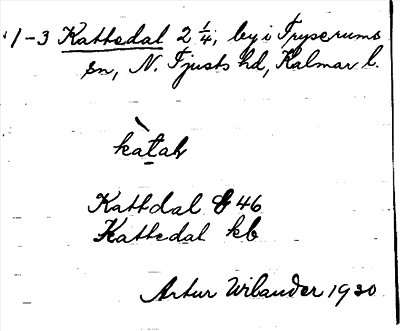 1-3 Kattedal 2 1/4, by i Tryserums
sn, N. Tjusts hd, Kalmar l.
kàtal
Kattdal 46
Kattedal kb
Artur Wilander 1930